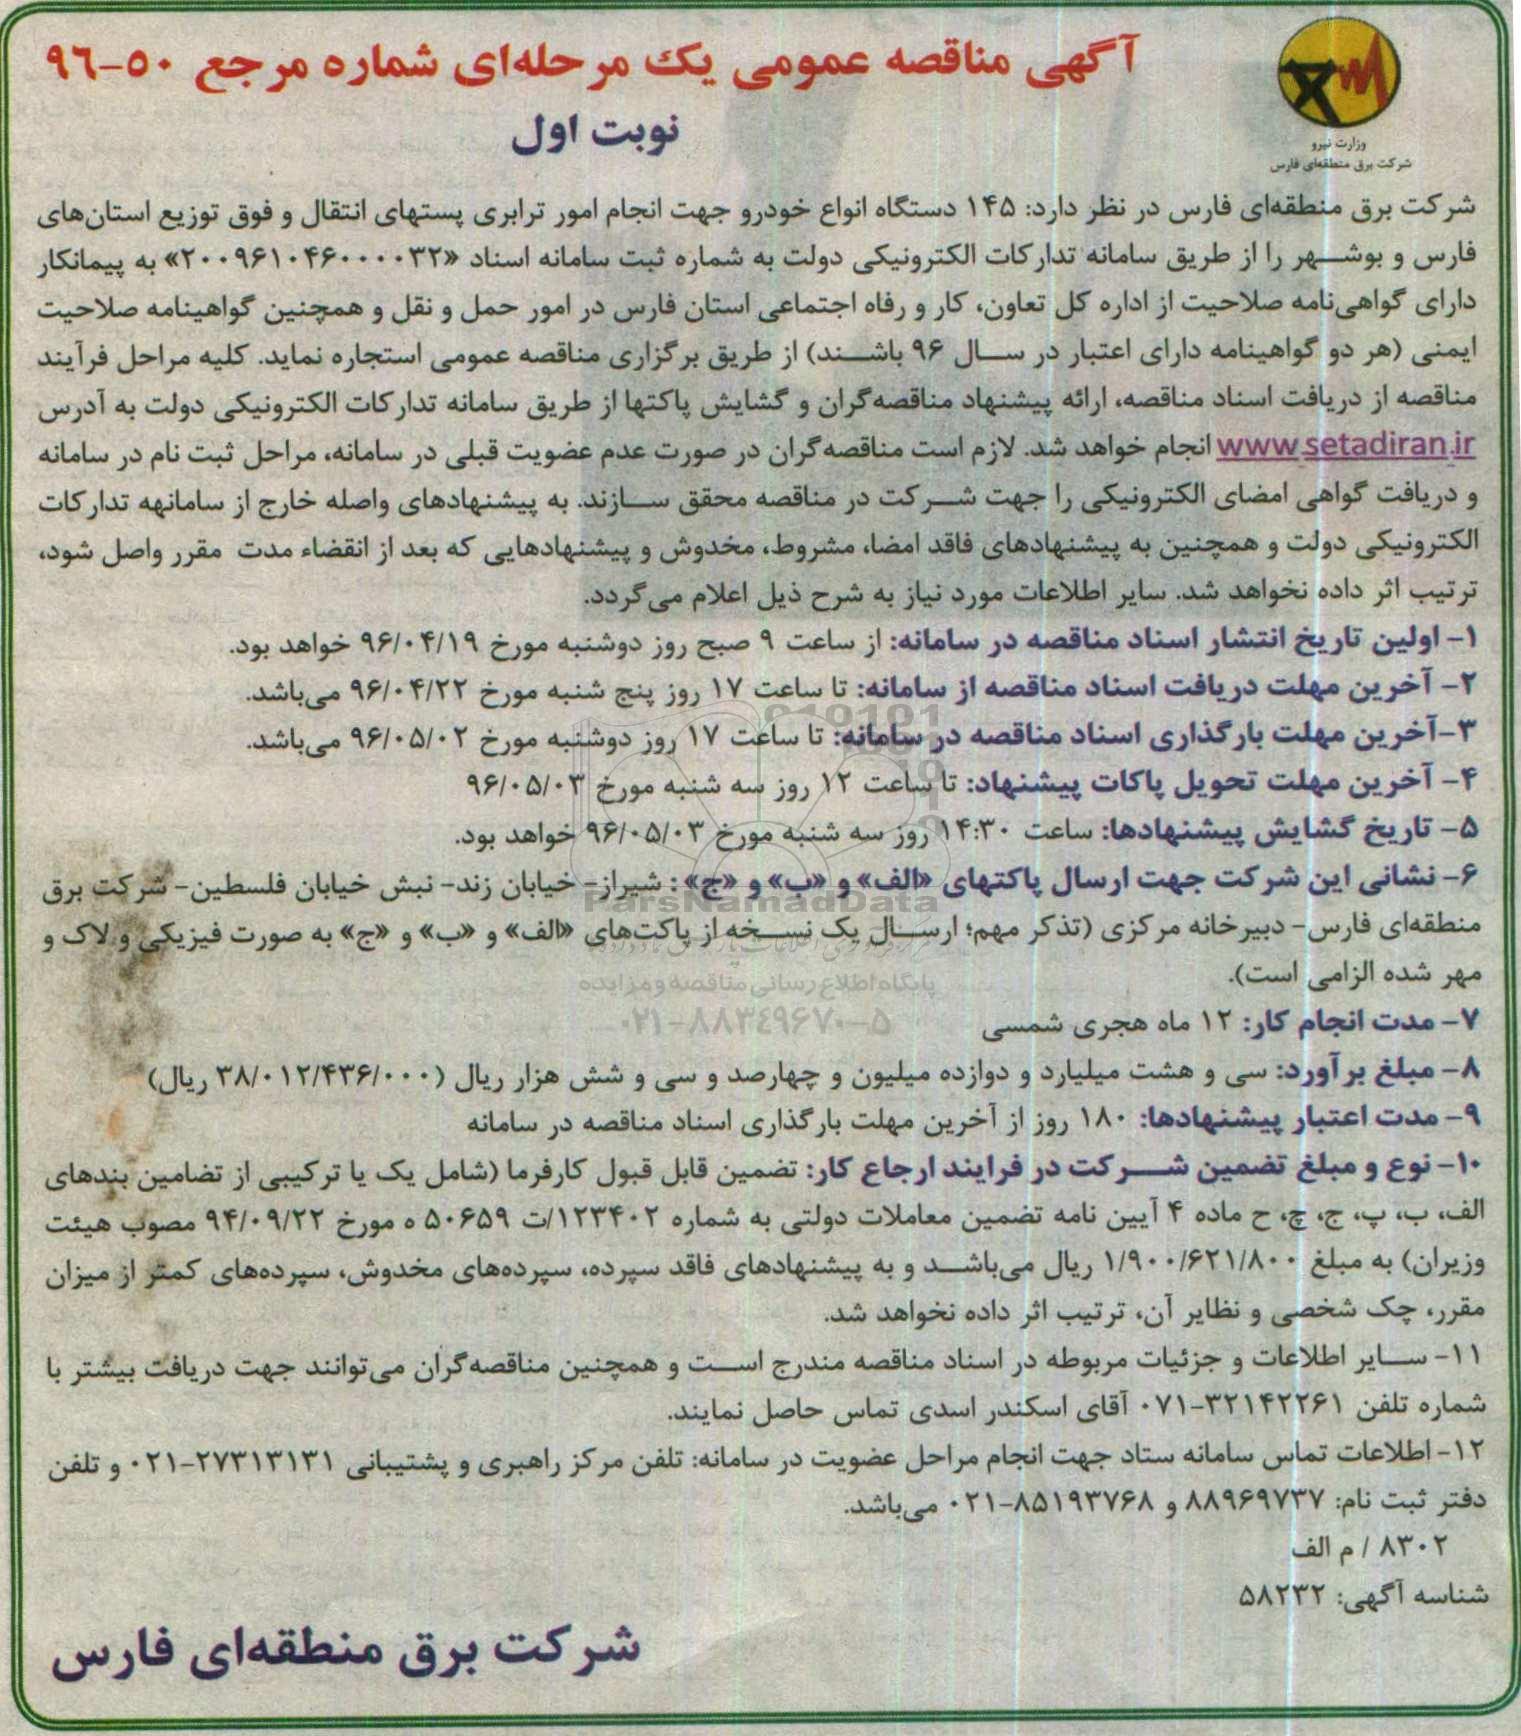 آگهی مناقصه عمومی یک مرحله‌ای شماره مرجع ۵۰-۹۶
نوبت اول
وزارت نیرو
شرکت برق منطقه‌ای فارس
شرکت برق منطقه‌ای فارس در نظر دارد: ۱۴۵ دستگاه انواع خودرو جهت انجام امور ترابری پستهای انتقال و فوق توزیع استان‌های
فارس و بوشهر را از طریق سامانه تدارکات الکترونیکی دولت به شماره ثبت سامانه اسناد «۲۰۰۹۶۱۰۴۶۰۰۰۰۳۲» به پیمانکار
دارای گواهی‌نامه صلاحیت از اداره کل تعاون، کار و رفاه اجتماعی استان فارس در امور حمل و نقل و همچنین گواهینامه صلاحیت
ایمنی (هر دو گواهینامه دارای اعتبار در سال ۹۶ باشند) از طریق برگزاری مناقصه عمومی استجاره نماید. کلیه مراحل فرآیند
مناقصه از دریافت اسناد مناقصه، ارائه پیشنهاد مناقصه‌گران و گشایش پاکتها از طریق سامانه تدارکات الکترونیکی دولت به آدرس
www.setadiran.ir انجام خواهد شد. لازم است مناقصه‌گران در صورت عدم عضویت قبلی در سامانه، مراحل ثبت نام در سامانه
و دریافت گواهی امضای الکترونیکی را جهت شرکت در مناقصه محقق سازند. به پیشنهادهای واصله خارج از سامانهه تدارکات
الکترونیکی دولت و همچنین به پیشنهادهای فاقد امضا، مشروط، مخدوش و پیشنهادهایی که بعد از انقضاء مدت مقرر واصل شود،
ترتیب اثر داده نخواهد شد. سایر اطلاعات مورد نیاز به شرح ذیل اعلام می‌گردد.
۱- اولین تاریخ انتشار اسناد مناقصه در سامانه: از ساعت ۹ صبح روز دوشنبه مورخ ۹۶/۰۴/۱۹ خواهد بود.
۲- آخرین مهلت دریافت اسناد مناقصه از سامانه: تا ساعت ۱۷ روز پنج شنبه مورخ ۹۶/۰۴/۲۲ می‌باشد.
۳-آخرین مهلت بارگذاری اسناد مناقصه در سامانه: تا ساعت ۱۷ روز دوشنبه مورخ ۹۶/۰۵/۰۲ می‌باشد.
۴- آخرین مهلت تحویل پاکات پیشنهاد: تا ساعت ۱۲ روز سه شنبه مورخ ۹۶/۰۵/۰۳
۵- تاریخ گشایش پیشنهادها: ساعت ۱۴:۳۰ روز سه شنبه مورخ ۹۶/۰۵/۰۳ خواهد بود.
۶- نشانی این شرکت جهت ارسال پاکتهای «الف» و «ب» و «ج»: شیراز- خیابان زند- نبش خیابان فلسطین- شرکت برق
ParsNamadData
منطقه‌ای فارس- دبیرخانه مرکزی (تذکر مهم؛ ارسال یک نسخه از پاکت‌های «الف» و «ب» و «ج» به صورت فیزیکی و لاک و
مهر شده الزامی است).
پایگاه اطلاع رسانی مناقصه و مزایده
۰۲۱-۸۸۳۴۹۶۷۰-۵
۷- مدت انجام کار: ۱۲ ماه هجری شمسی
۸- مبلغ برآورد: سی و هشت میلیارد و دوازده میلیون و چهارصد و سی و شش هزار ریال (۳۸/۰۱۲/۴۳۶/۰۰۰ ریال)
۹- مدت اعتبار پیشنهادها: ۱۸۰ روز از آخرین مهلت بارگذاری اسناد مناقصه در سامانه
۱۰- نوع و مبلغ تضمین شرکت در فرایند ارجاع کار: تضمین قابل قبول کارفرما (شامل یک یا ترکیبی از تضامین بندهای
الف، ب، پ، ج، چ، ح ماده ۴ آیین نامه تضمین معاملات دولتی به شماره ۱۲۳۴۰۲/ت ۵۰۶۵۹ ه مورخ ۹۴/۰۹/۲۲ مصوب هیئت
وزیران) به مبلغ ۱/۹۰۰/۶۲۱/۸۰۰ ریال می‌باشد و به پیشنهادهای فاقد سپرده، سپرده‌های مخدوش، سپرده‌های کمتر از میزان
مقرر، چک شخصی و نظایر آن، ترتیب اثر داده نخواهد شد.
۱۱- سایر اطلاعات و جزئیات مربوطه در اسناد مناقصه مندرج است و همچنین مناقصه‌گران می‌توانند جهت دریافت بیشتر با
شماره تلفن ۳۲۱۴۲۲۶۱-۰۷۱ آقای اسکندر اسدی تماس حاصل نمایند.
۱۲- اطلاعات تماس سامانه ستاد جهت انجام مراحل عضویت در سامانه: تلفن مرکز راهبری و پشتیبانی ۲۷۳۱۳۱۳۱-۰۲۱ و تلفن
دفتر ثبت نام: ۸۸۹۶۹۷۳۷ و ۸۵۱۹۳۷۶۸-۰۲۱ می‌باشد.
۸۳۰۲ / م الف
شناسه آگهی: ۵۸۲۳۲
شرکت برق منطقه‌ای فارس